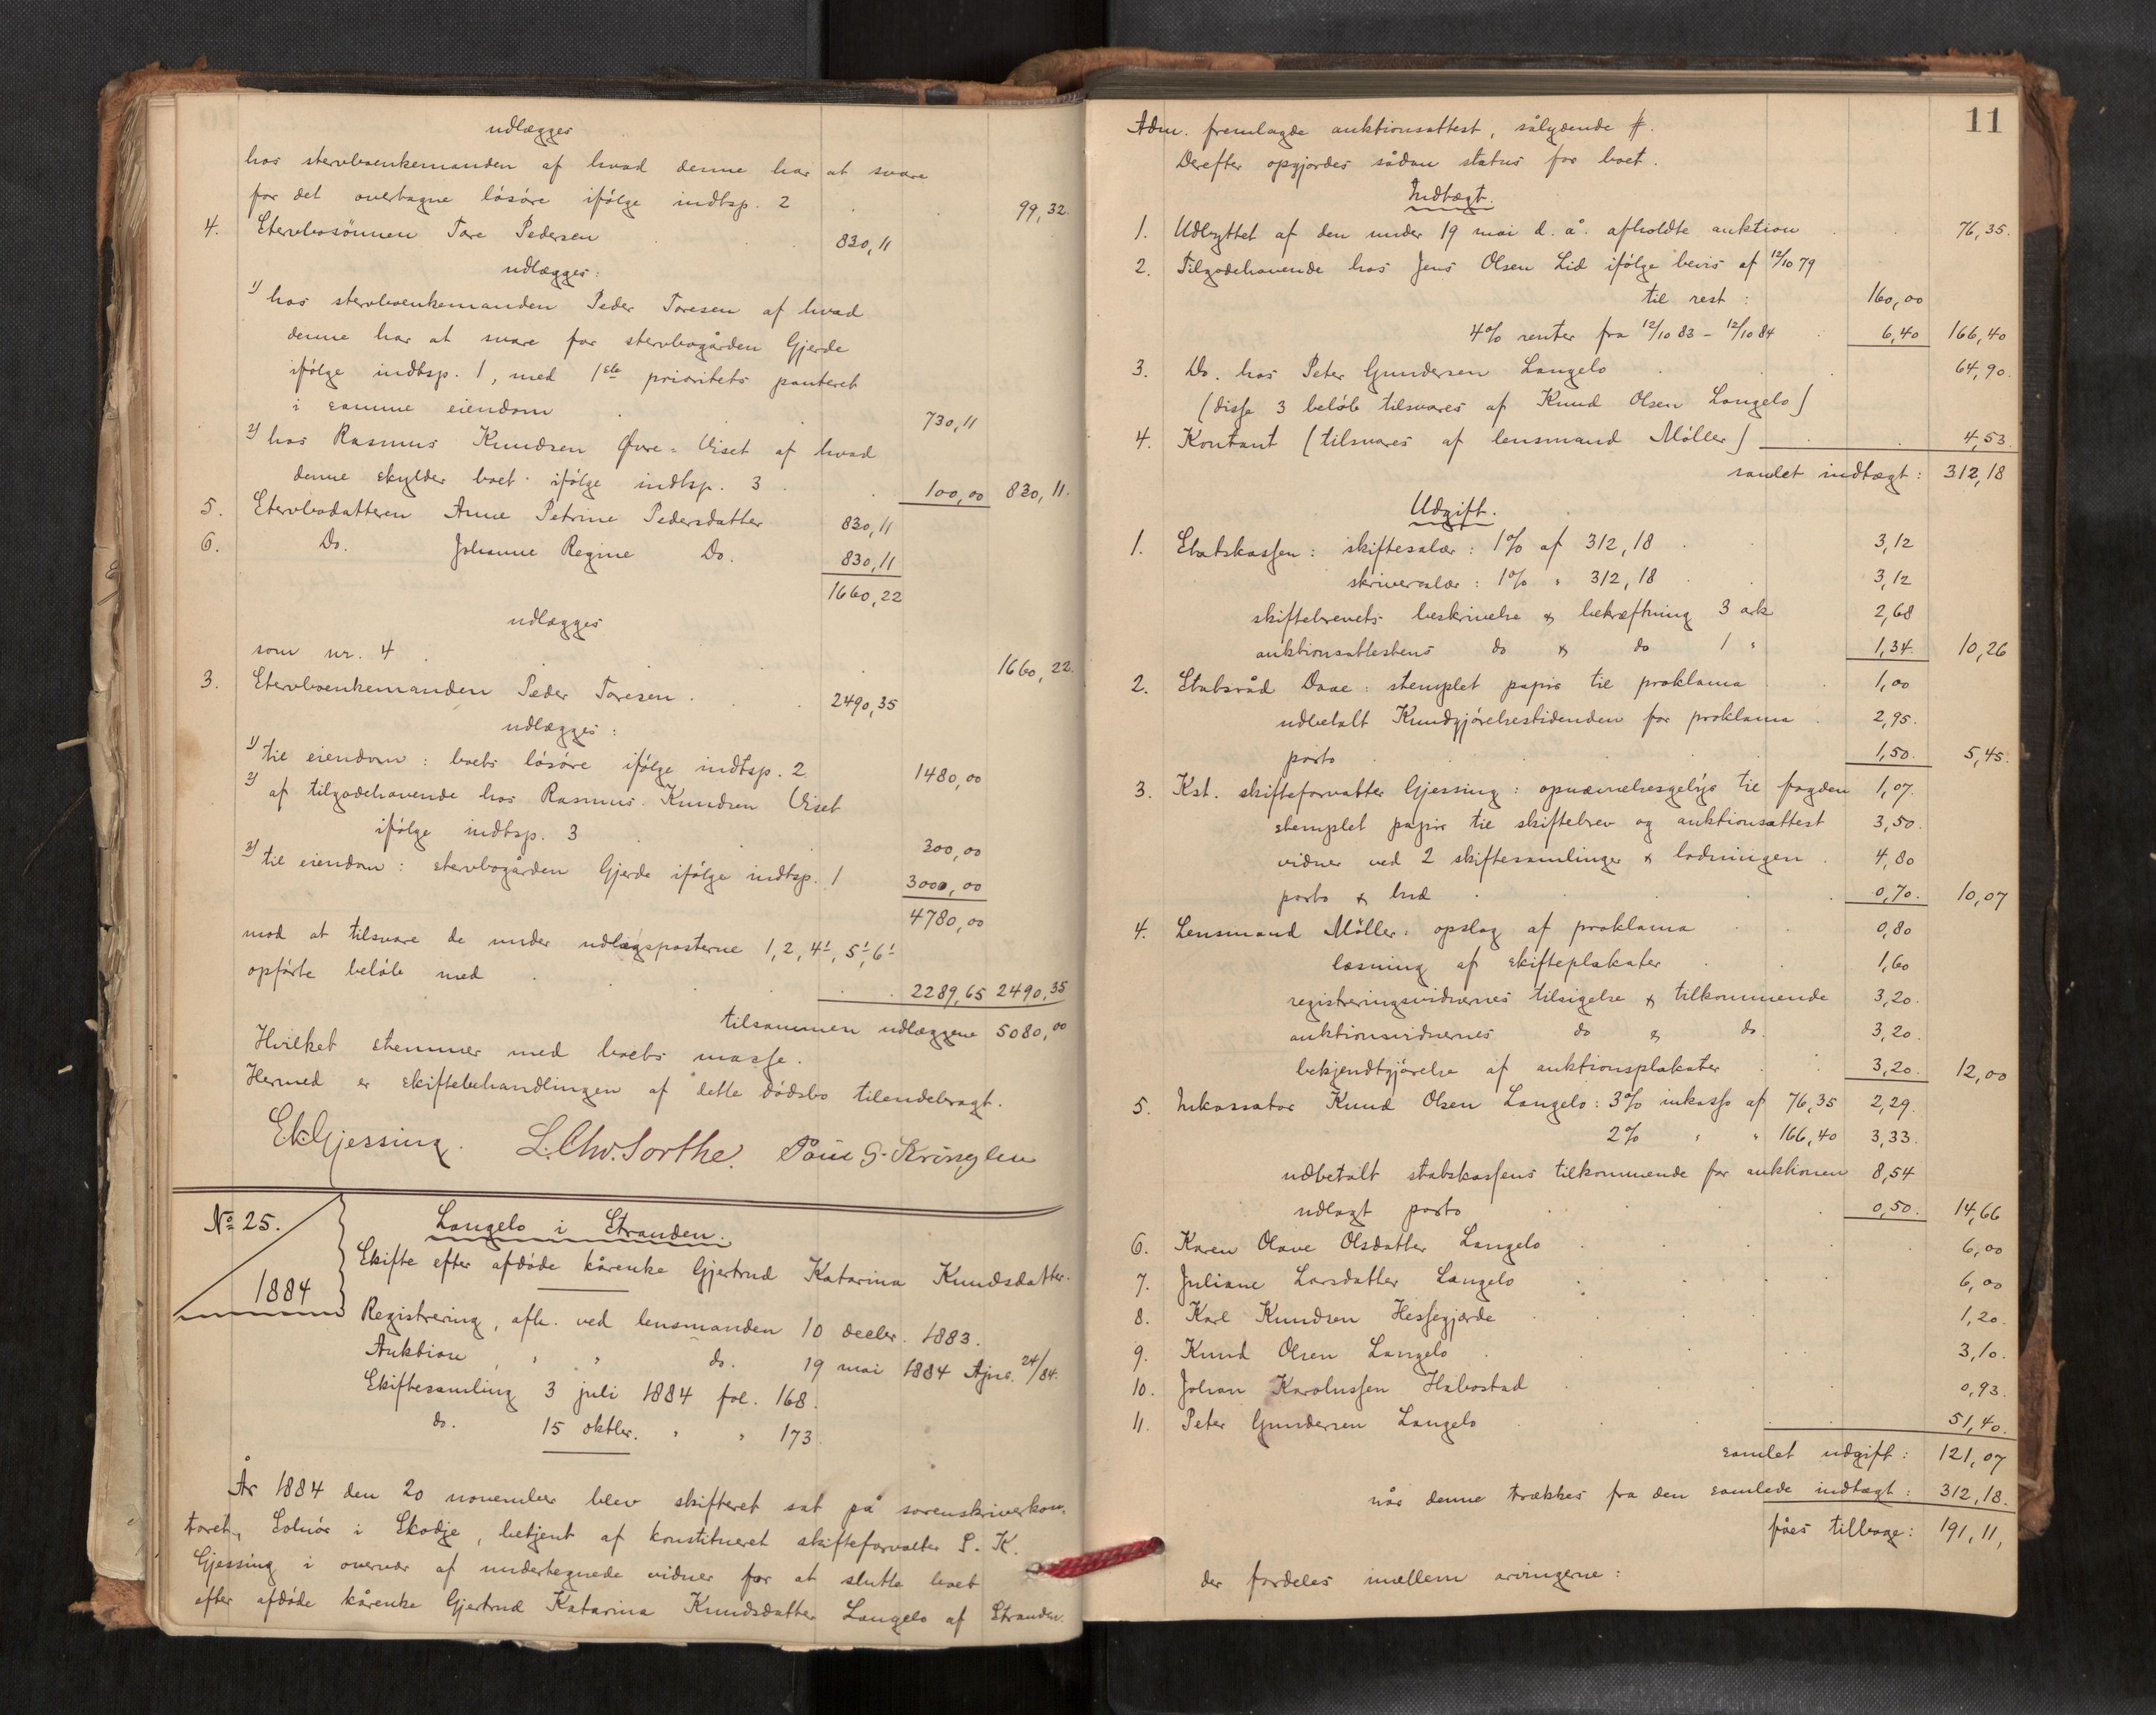 udlægges
hos stervboenkemanden af hvad denne har at svare
for det overtagne lösöre ifölge indtsp. 2 99,32.
4. Stervbosönnen Tore Pedersen 830,11
udlægges:
1) hos stervboenkemanden Peder Toresen af hvad
denne har at svare for stervbogården Gjerde
ifölge indtsp. 1, med 1ste prioritets panteret
i samme eiendom 730,11
2) hos Rasmus Knudsen Øvre-Viset af hvad
denne skylder boet ifölge indtsp. 3 100,00 830,11.
5. Stervbodatteren Anne Petrine Pedersdatter 830,11
6. Do. Johanne Regine Do. 830,11
1660,22
udlægges
som nr. 4 1660,22.
3. Stervboenkemanden Peder Toresen. 2490,35
udlægges:
1) til eiendom: boets lösöre ifölge indtsp. 2 1480,00
2) af tilgodehavende hos Rasmus Knudsen Viset
ifölge indtsp. 3 300,00
3) til eiendom: stervbogården Gjerde ifölge indtsp. 1 3000,00
4780,00
mod at tilsvare de under udlægsposterne 1, 2, 4¹, 5¹, 6¹
opförte belöb med 2289,65 2490,35
tilsammen udlæggene 5080,00
Hvilket stemmer med boets masse.
Hermed er skiftebehandlingen af dette dödsbo tilendebragt.
EkGjessing. L.Chr.Sorthe. Paul G. Kringlen
No 25.
1884
Langelo i Stranden.
Skifte efter afdöde kårenke Gjertrud Katarina Knudsdatter.
Registrering, afh. ved lensmanden 10 decbr. 1883.
Auktion, " " do. 19 mai 1884 Ajns. 24/84.
Skiftesamling 3 juli 1884 fol. 168.
do. 15 oktbr. " " 173.
År 1884 den 20 november blev skifteret sat på sorenskriverkon-
toret, Solnör i Skodje, betjent af konstitueret skifteforvalter S. K.
Gjessing i overvær af undertegnede vidner for at slutte boet
efter afdöde kårenke Gjertrud Katarina Knudsdatter Langelo af Stranden.
11
Adm. fremlagde auktionsattest, sålydende #.
Derefter opgjordes sådan status for boet.
Indtægt.
1. Udbyttet af den under 19 mai d. å. afholdte auktion 76,35.
2. Tilgodehavende hos Jens Olsen Lid ifölge bevis af 12/10 79
til rest: 160,00
4% renter fra 12/10 83 - 12/10 84 6,40 166,40
3. Do. hos Peter Gundersen Langelo 64,90.
(disse 3 belöb tilsvares af Knud Olsen Langelo)
4. Kontant (tilsvares af lensmand Möller) 4,53.
samlet indtægt: 312,18
Udgift.
1. Statskassen: skiftesalær: 1% af 312,18 3,12
skriversalær: 1% " 312,18 3,12
skiftebrevets beskrivelse & bekræftning 3 ark 2,68
auktionsattestens do & do 1 " 1,34. 10,26
2. Statsråd Daae: stemplet papir til proklama 1,00
udbetalt Kundgjörelsestidenden for proklama 2,95.
porto 1,50. 5,45.
3. Kst. skifteforvalter Gjessing: opnævnelsesgebyr til fogden 1,07.
stemplet papir til skiftebrev og auktionsattest 3,50.
vidner ved 2 skiftesamlinger & lodningen 4,80
porto & bud 0,70. 10,07
4. Lensmand Möller: opslag af proklama 0,80
læsning af skifteplakater 1,60
registreringsvidnernes tilsigelse & tilkommende 3,20.
auktionsvidnernes do & do. 3,20.
bekjendtgjörelse af auktionsplakater 3,20. 12,00
5. Inkassator Knud Olsen Langelo: 3% inkasso af 76,35 2,29.
2% " " 166,40 3,33.
udbetalt statskassens tilkommende for auktionen 8,54
udlagt porto 0,50. 14,66
6. Karen Olave Olsdatter Langelo 6,00
7. Juliane Larsdatter Langelo 6,00
8. Karl Knudsen Hessegjerde 1,20.
9. Knud Olsen Langelo 3,10.
10. Johan Karolussen Habostad 0,93.
11. Peter Gundersen Langelo 51,40.
samlet udgift: 121,07
når denne trækkes fra den samlede indtægt: 312,18.
fåes tilbage: 191,11,
der fordeles mellem arvingerne: